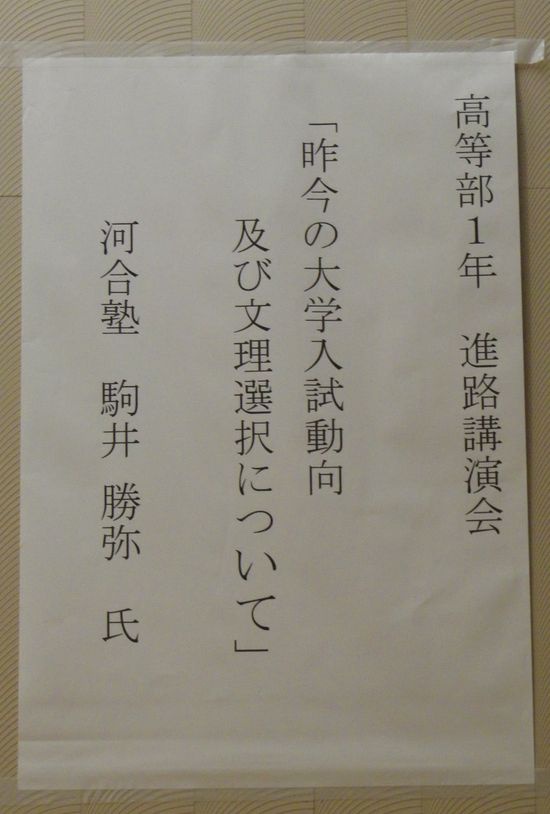 高等部1年　進路講演会
「昨今の大学入試動向
及び文理選択について」
河合塾　駒井 勝弥　氏